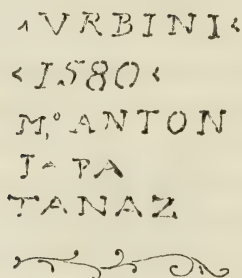 ‹ VRBINI ‹
‹ 1580 ‹
M,º ANTON
TANAZ